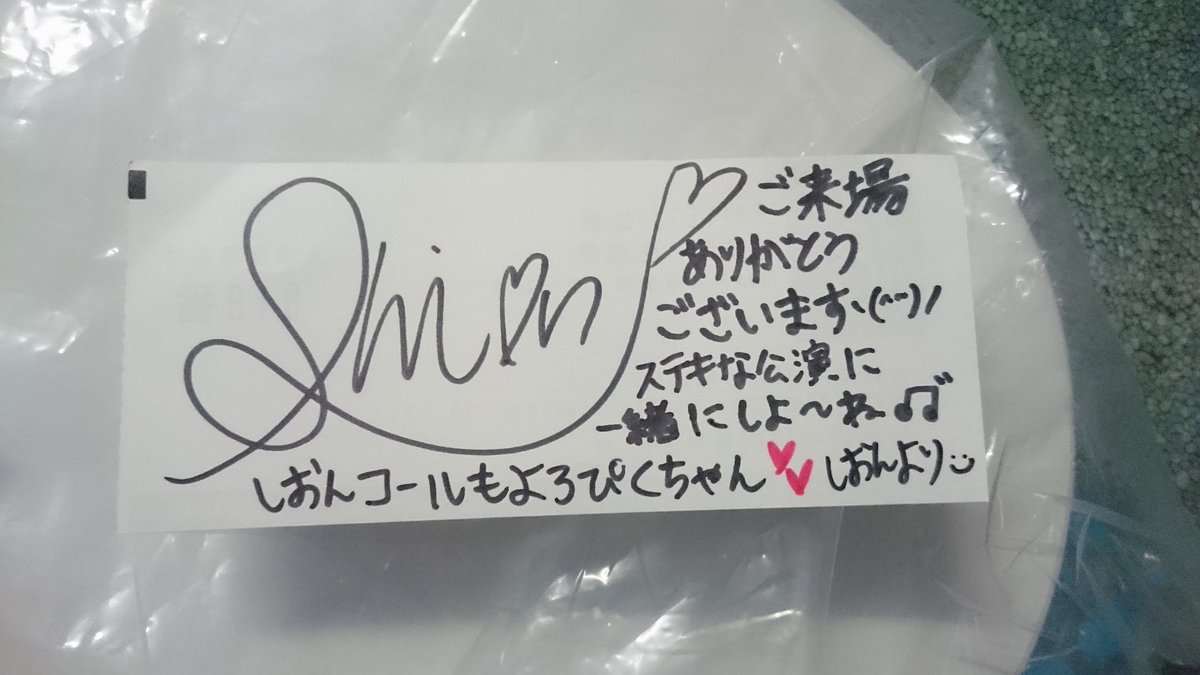 Shion
ご来場
ありがとう
ございますヽ(^^)ノ
ステキな公演に
一緒にしよ〜ね♫
しおんコールもよろぴくちゃん♥♥しおんより